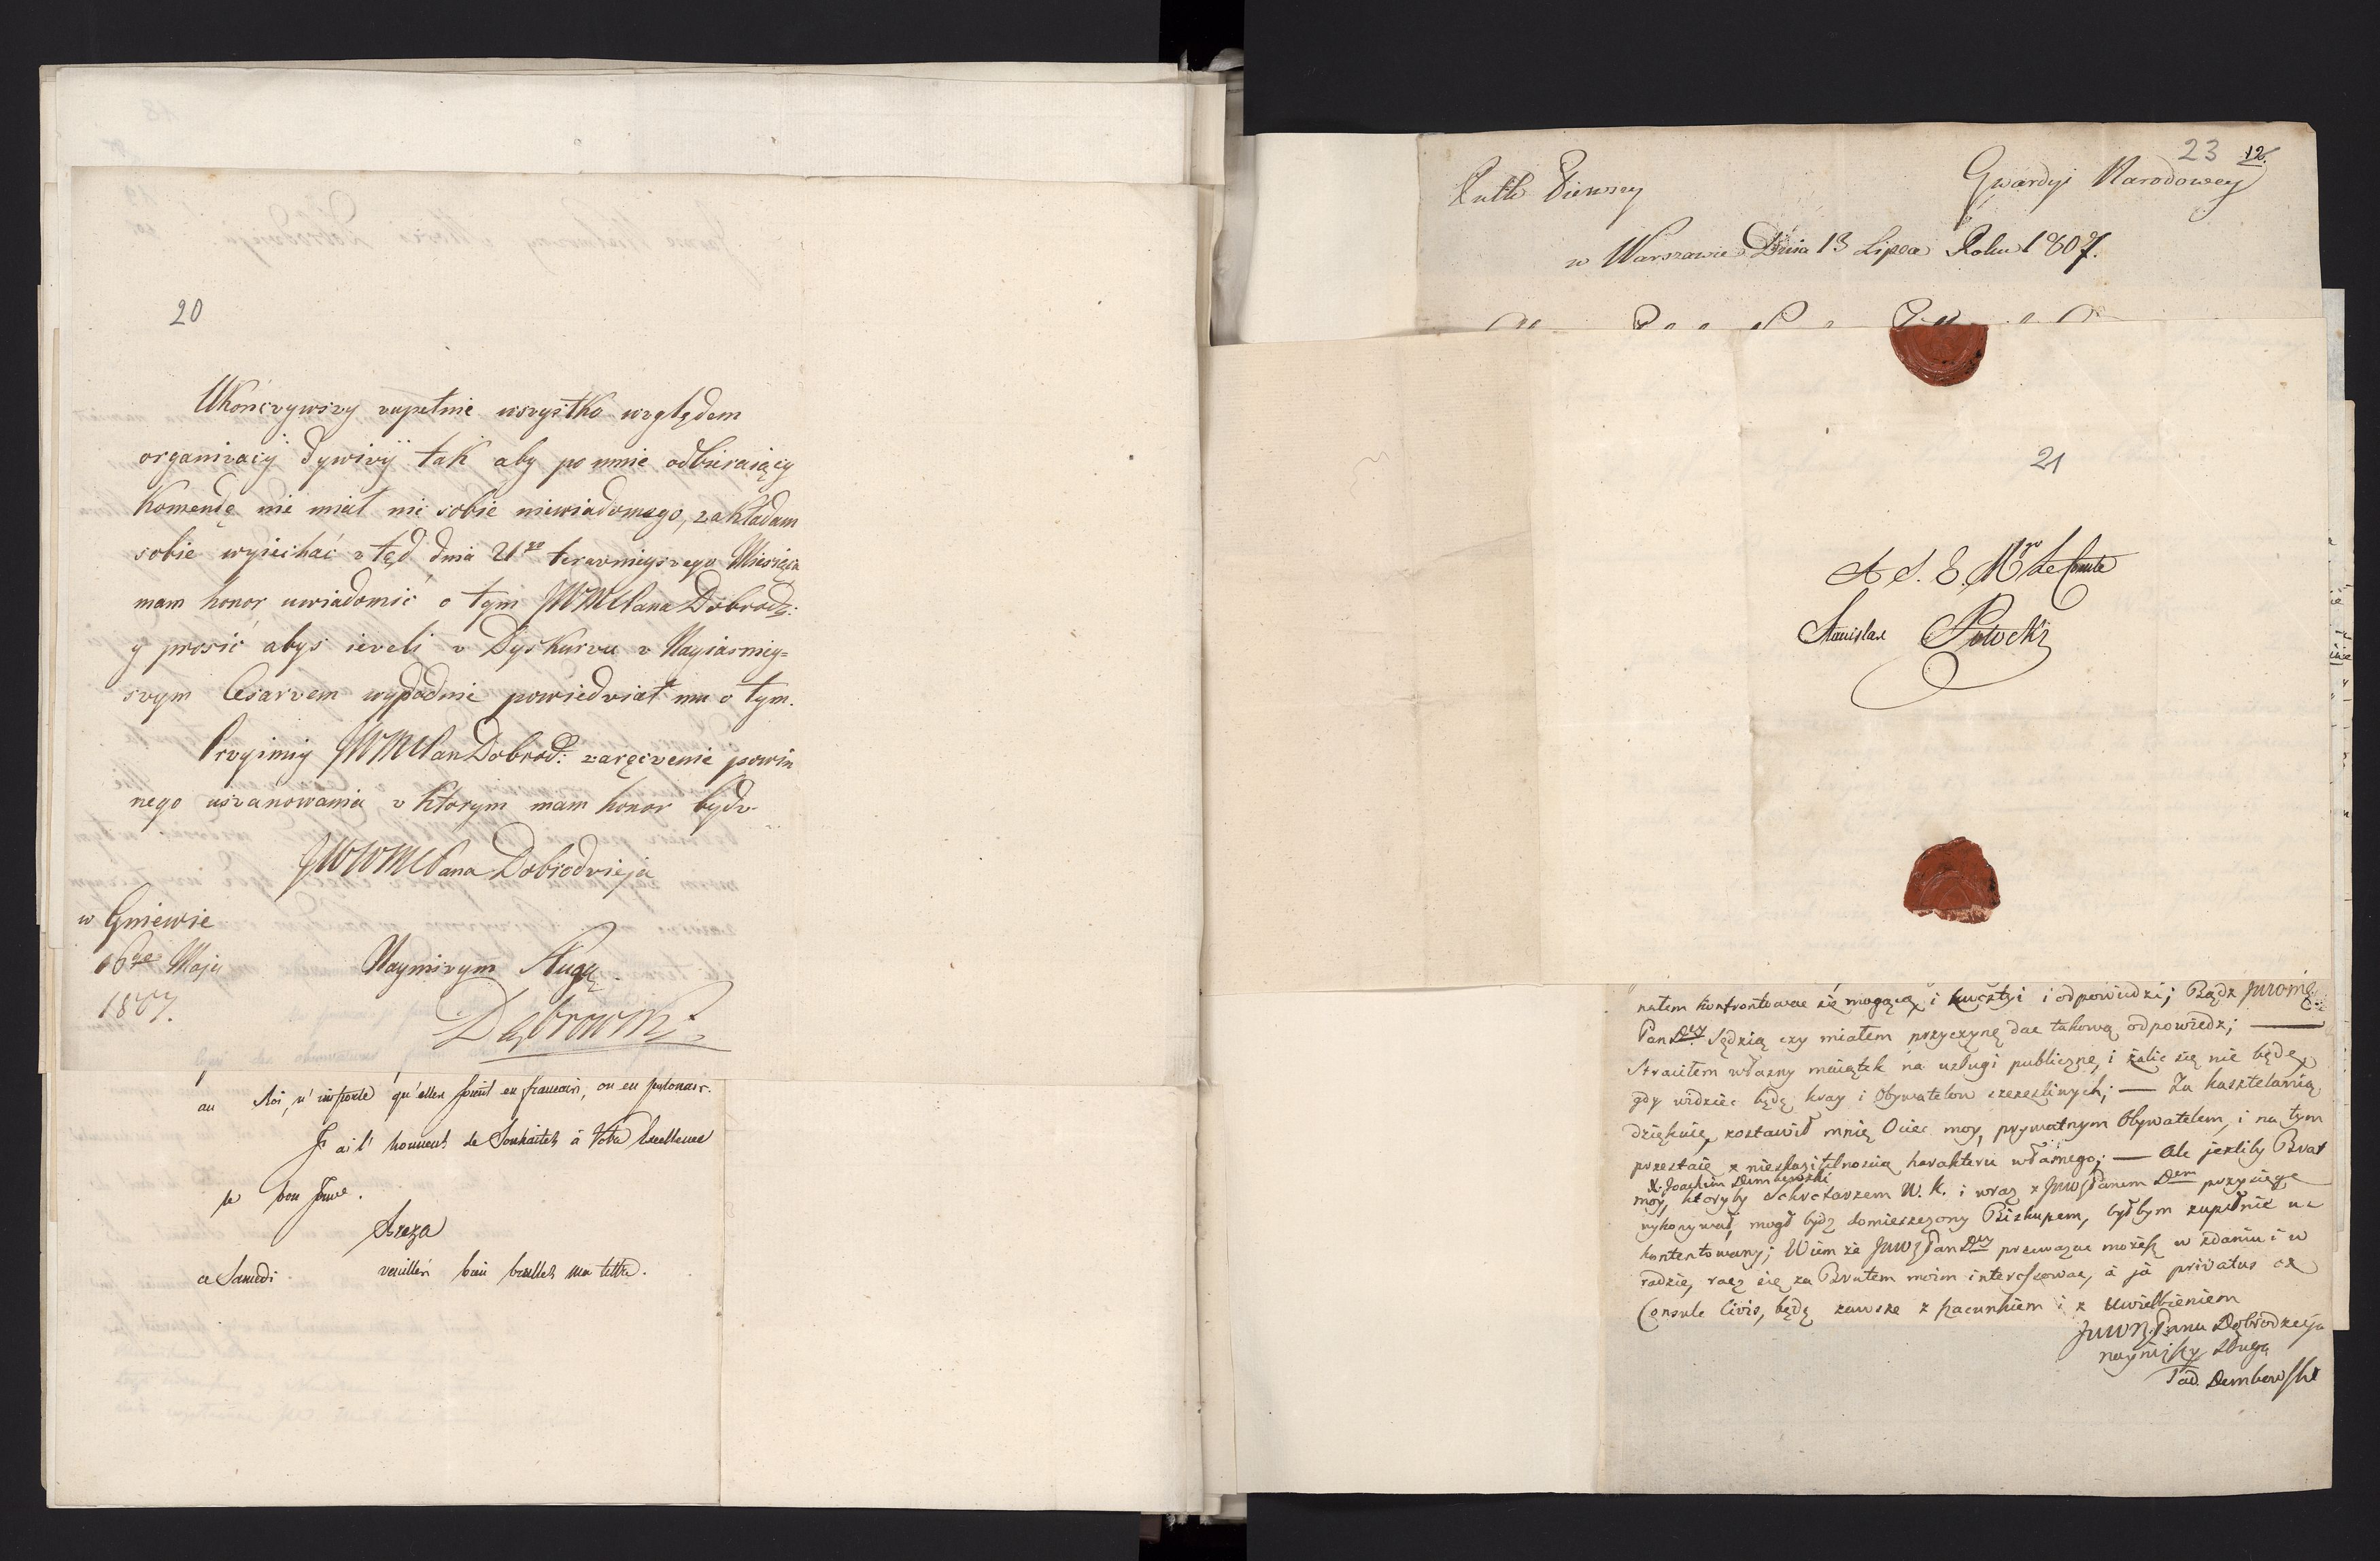 20
Ukończywszy zupełnie wszystko względem
organizacÿ dywizÿ tak aby po mnie odbieraiący
Komendę nie miał nic sobie niewiadomego, zakładam
sobie wyiechać z tąd dnia 21go teraznieyszego Miesiąca
mam honor uwiadomić o tym JWWMPana Dobrodz:
y prosić abyś ieżeli w Dyskursie z Nayiasniey=
szym Cesarzem wypadnie powiedział mu o tym.
Przyimiy JWWMPan Dobrod: zaręczenie powin
nego uszanowania z ktorym mam honor bydz
JWWMPana Dobrodzieja
w Gniewie
16go Maja
1807.
Naynizszym Sługą
Dąbrowski
au Roi, n'importe qu'elles soient en francais, ou en polonais.
J'ai l'honneur de Souhaiter à Votre Excellence
le bon jour.
ce Samedi
veuillez bien bruller ma lettre.
23 12.
Pułk Pierwszy Gwardyi Narodowey
w Warszawie Dnia 13 Lipca Roku 1807.
21
A S. E. Mgr Le Comte
Stanislas Potocki
natem konfrontowac się mogącą i kwestyi i odpowiedzi; Bądz
Pan Dey Sędzią czy miałem przyczynę dac takową odpowiedz; —
Straciłem własny maiątek na usługi publiczne, i żalic się nie będę,
gdy widziec będę kray i Obywatelow szczesliwych; — Za kasztelanią
dziękuię, zostawił mnię Ociec moy, prywatnym Obywatelem, i na tym
przestaię z nieskazitelnoscią harakteru własnego; — Ale jezliby Brat
X. Joachim Dembowski
moy, ktoryby Sekretarzem W. K. i wraz z JWWPanem Dem przysięgę
wykonywał, mogł bydz domieszczony Biskupem, byłbym zupełnie u=
kontentowany; Wiem że JWWPan Dey przeważac możesz w zdaniu i w
radzie, racz się za Bratem moim interessowac, à jà privatus ex
Consule Civis, będę zawsze z szacunkiem i z Uwielbieniem
JWW Pana Dobrodzieja
nayniższy Sługa
Tad. Dembowski